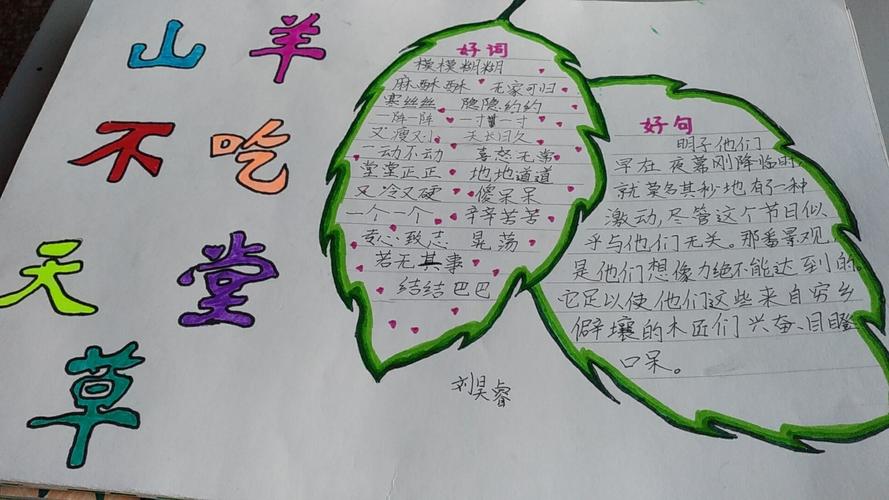 山羊
不吃
天堂
草
好词
模模糊糊
麻酥酥 无家可归
寒丝丝 隐隐约约
一阵一阵 一寸一寸
又瘦又小 天长日久
一动不动 喜怒无常
堂堂正正 地地道道
又冷又硬 傻呆呆
一个一个 辛辛苦苦
专心致志 晃荡
若无其事
结结巴巴
刘昊睿
好句
明子他们
早在夜幕刚降临时，
就莫名其秒地有了一种
激动，尽管这个节日似
乎与他们无关。那番景观，
是他们想像力绝不能达到的。
它足以使他们这些来自穷乡
僻壤的木匠们兴奋、目瞪
口呆。